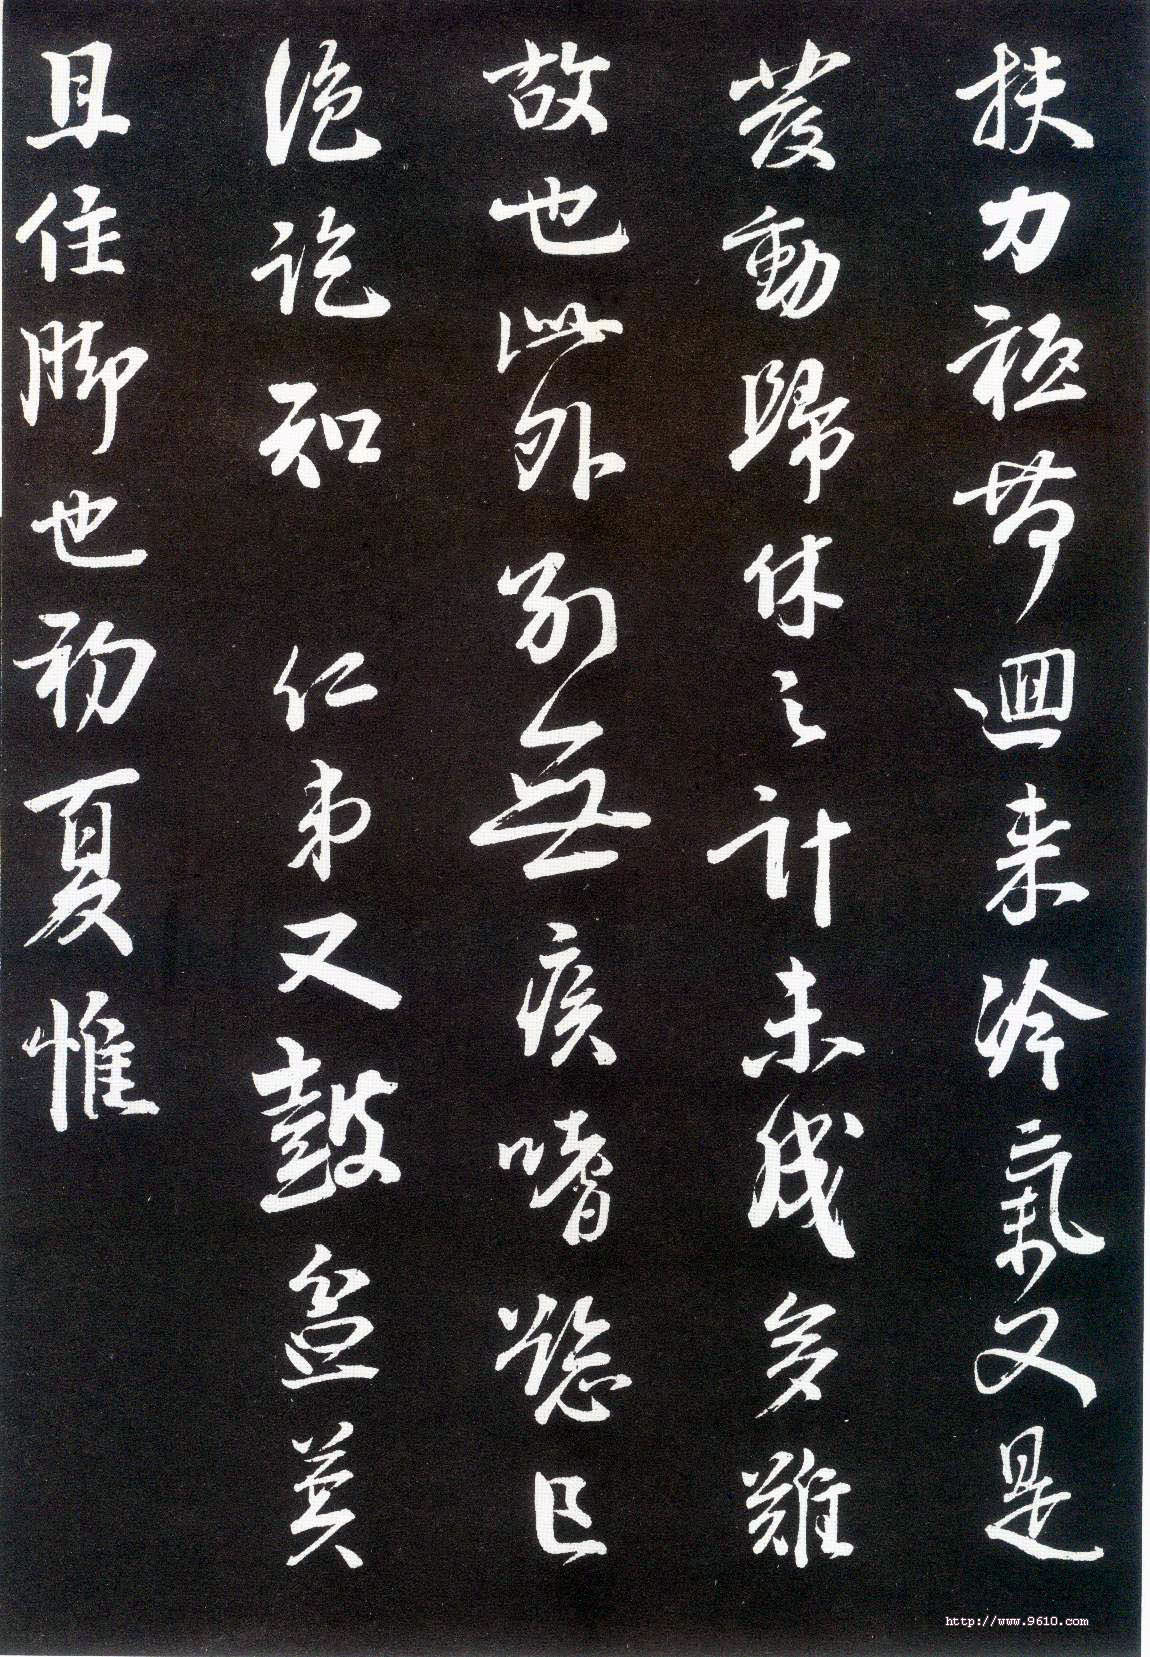 扶力祗帶迴来冷氣又是
發動歸休之計未成多難
故也此外別無疾嗜慾已
絕訖知 仁弟又鼓盆莫
且住脚也初夏惟
http://www.9610.com